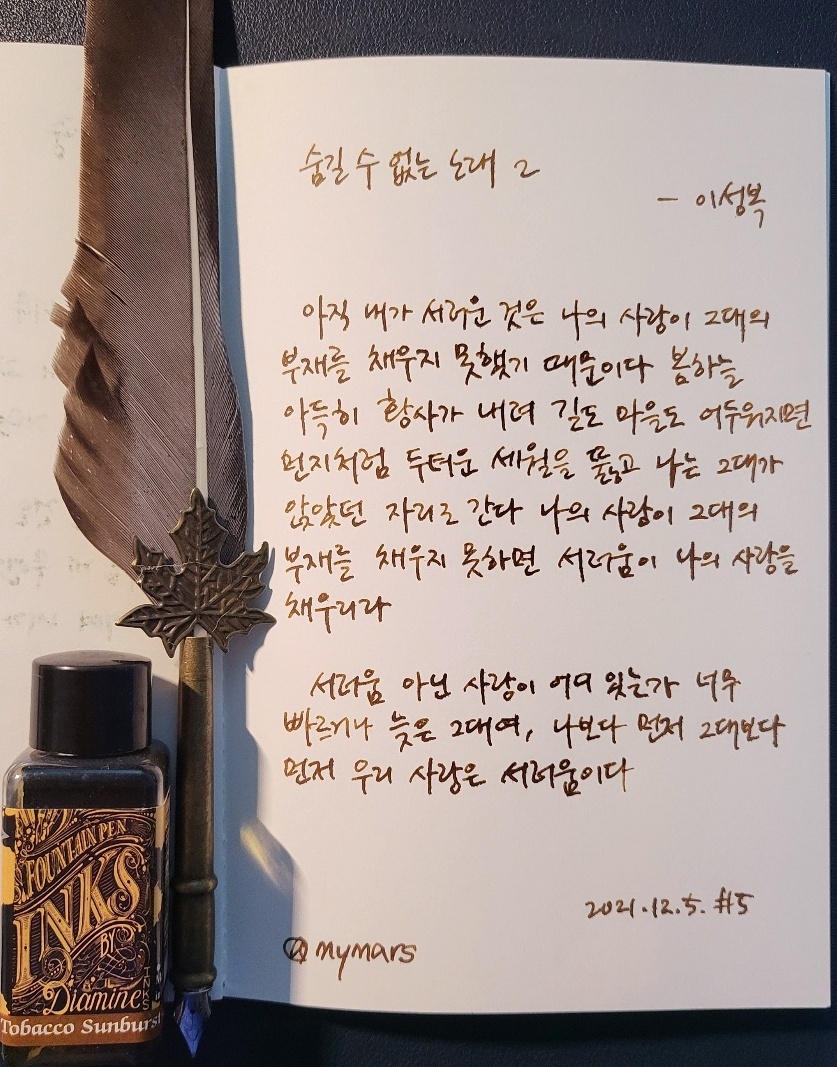 숨길 수 없는 노래 2
- 이성복
아직 내가 서러운 것은 나의 사랑이 그대의
부재를 채우지 못했기 때문이다 봄하늘
아득히 황사가 내려 길도 마을도 어두워지면
먼지처럼 두터운 세월을 뚫고 나는 그대가
앉았던 자리로 간다 나의 사랑이 그대의
부재를 채우지 못하면 서러움이 나의 사랑을
채우리라
서러움 아닌 사랑이 어디 있는가 너무
빠르거나 늦은 그대여, 나보다 먼저 그대보다
먼저 우리 사랑은 서러움이다
2021.12.5. #5
@mymars
FOUNTAIN PEN
INKS
BY
Diamine
INKS
Tobacco Sunburst